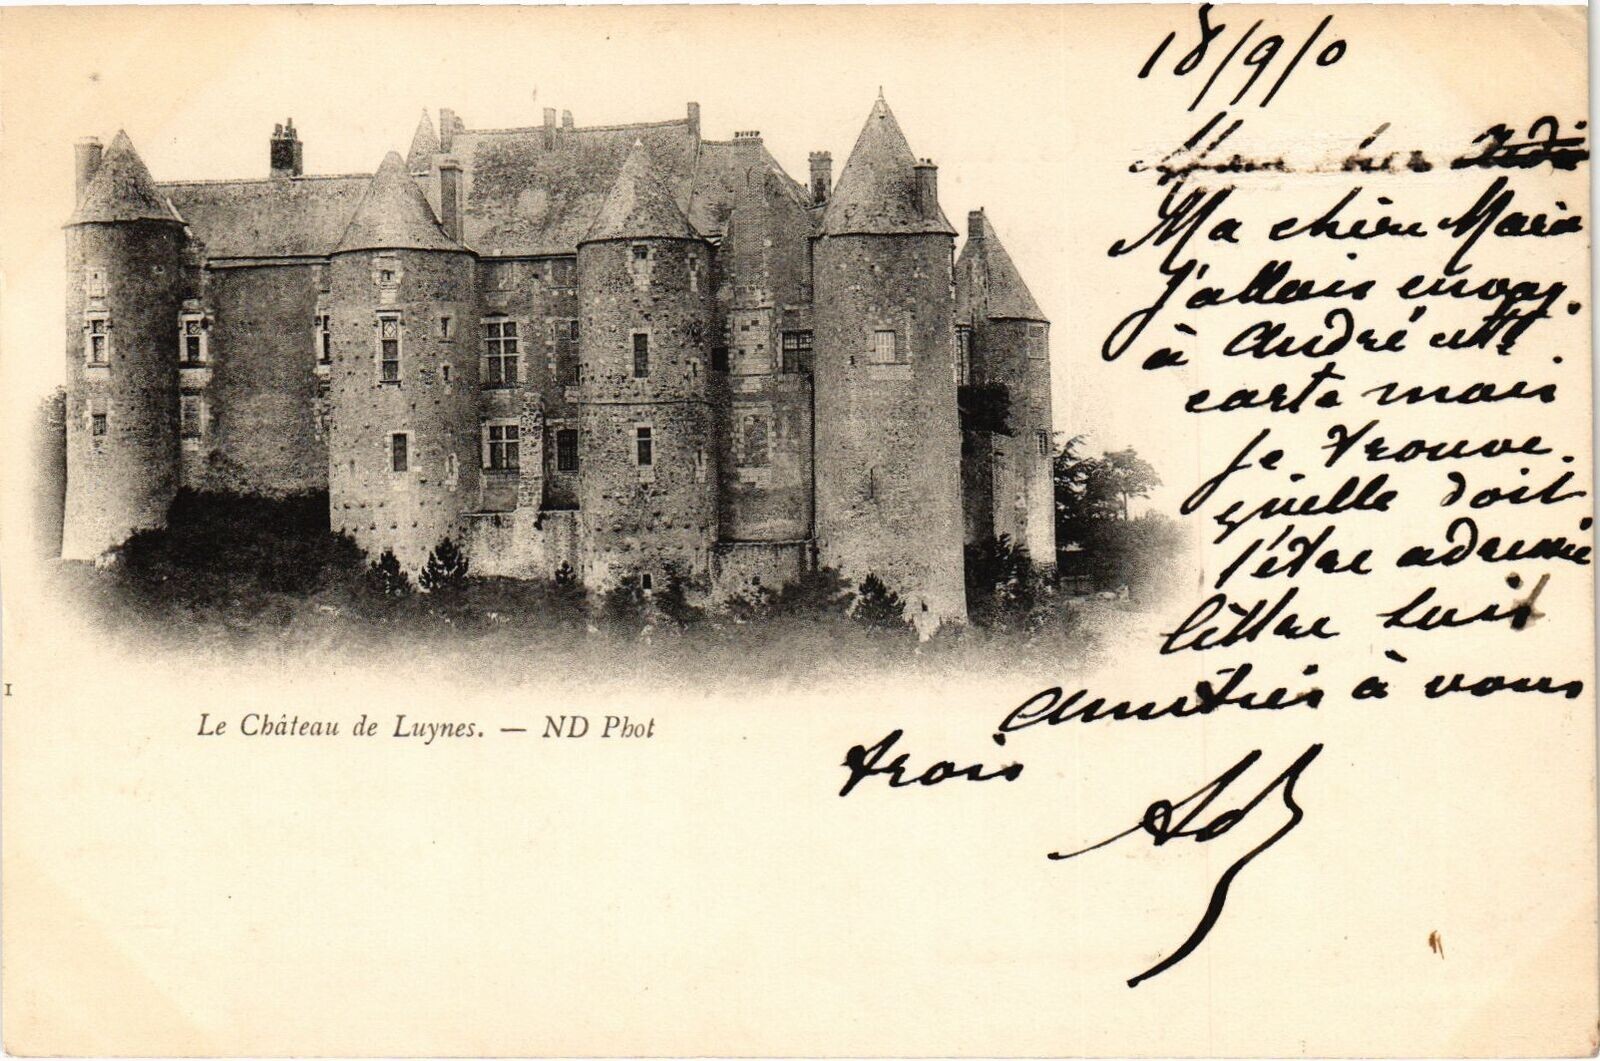 18/9/0
Mon cher
Ma chère Marie
j'allais envoy.
à André cette
carte mais
je trouve
qu'elle doit
t'être adressée
lettre suit
Amitiés à vous
trois
I
Le Château de Luynes. — ND Phot